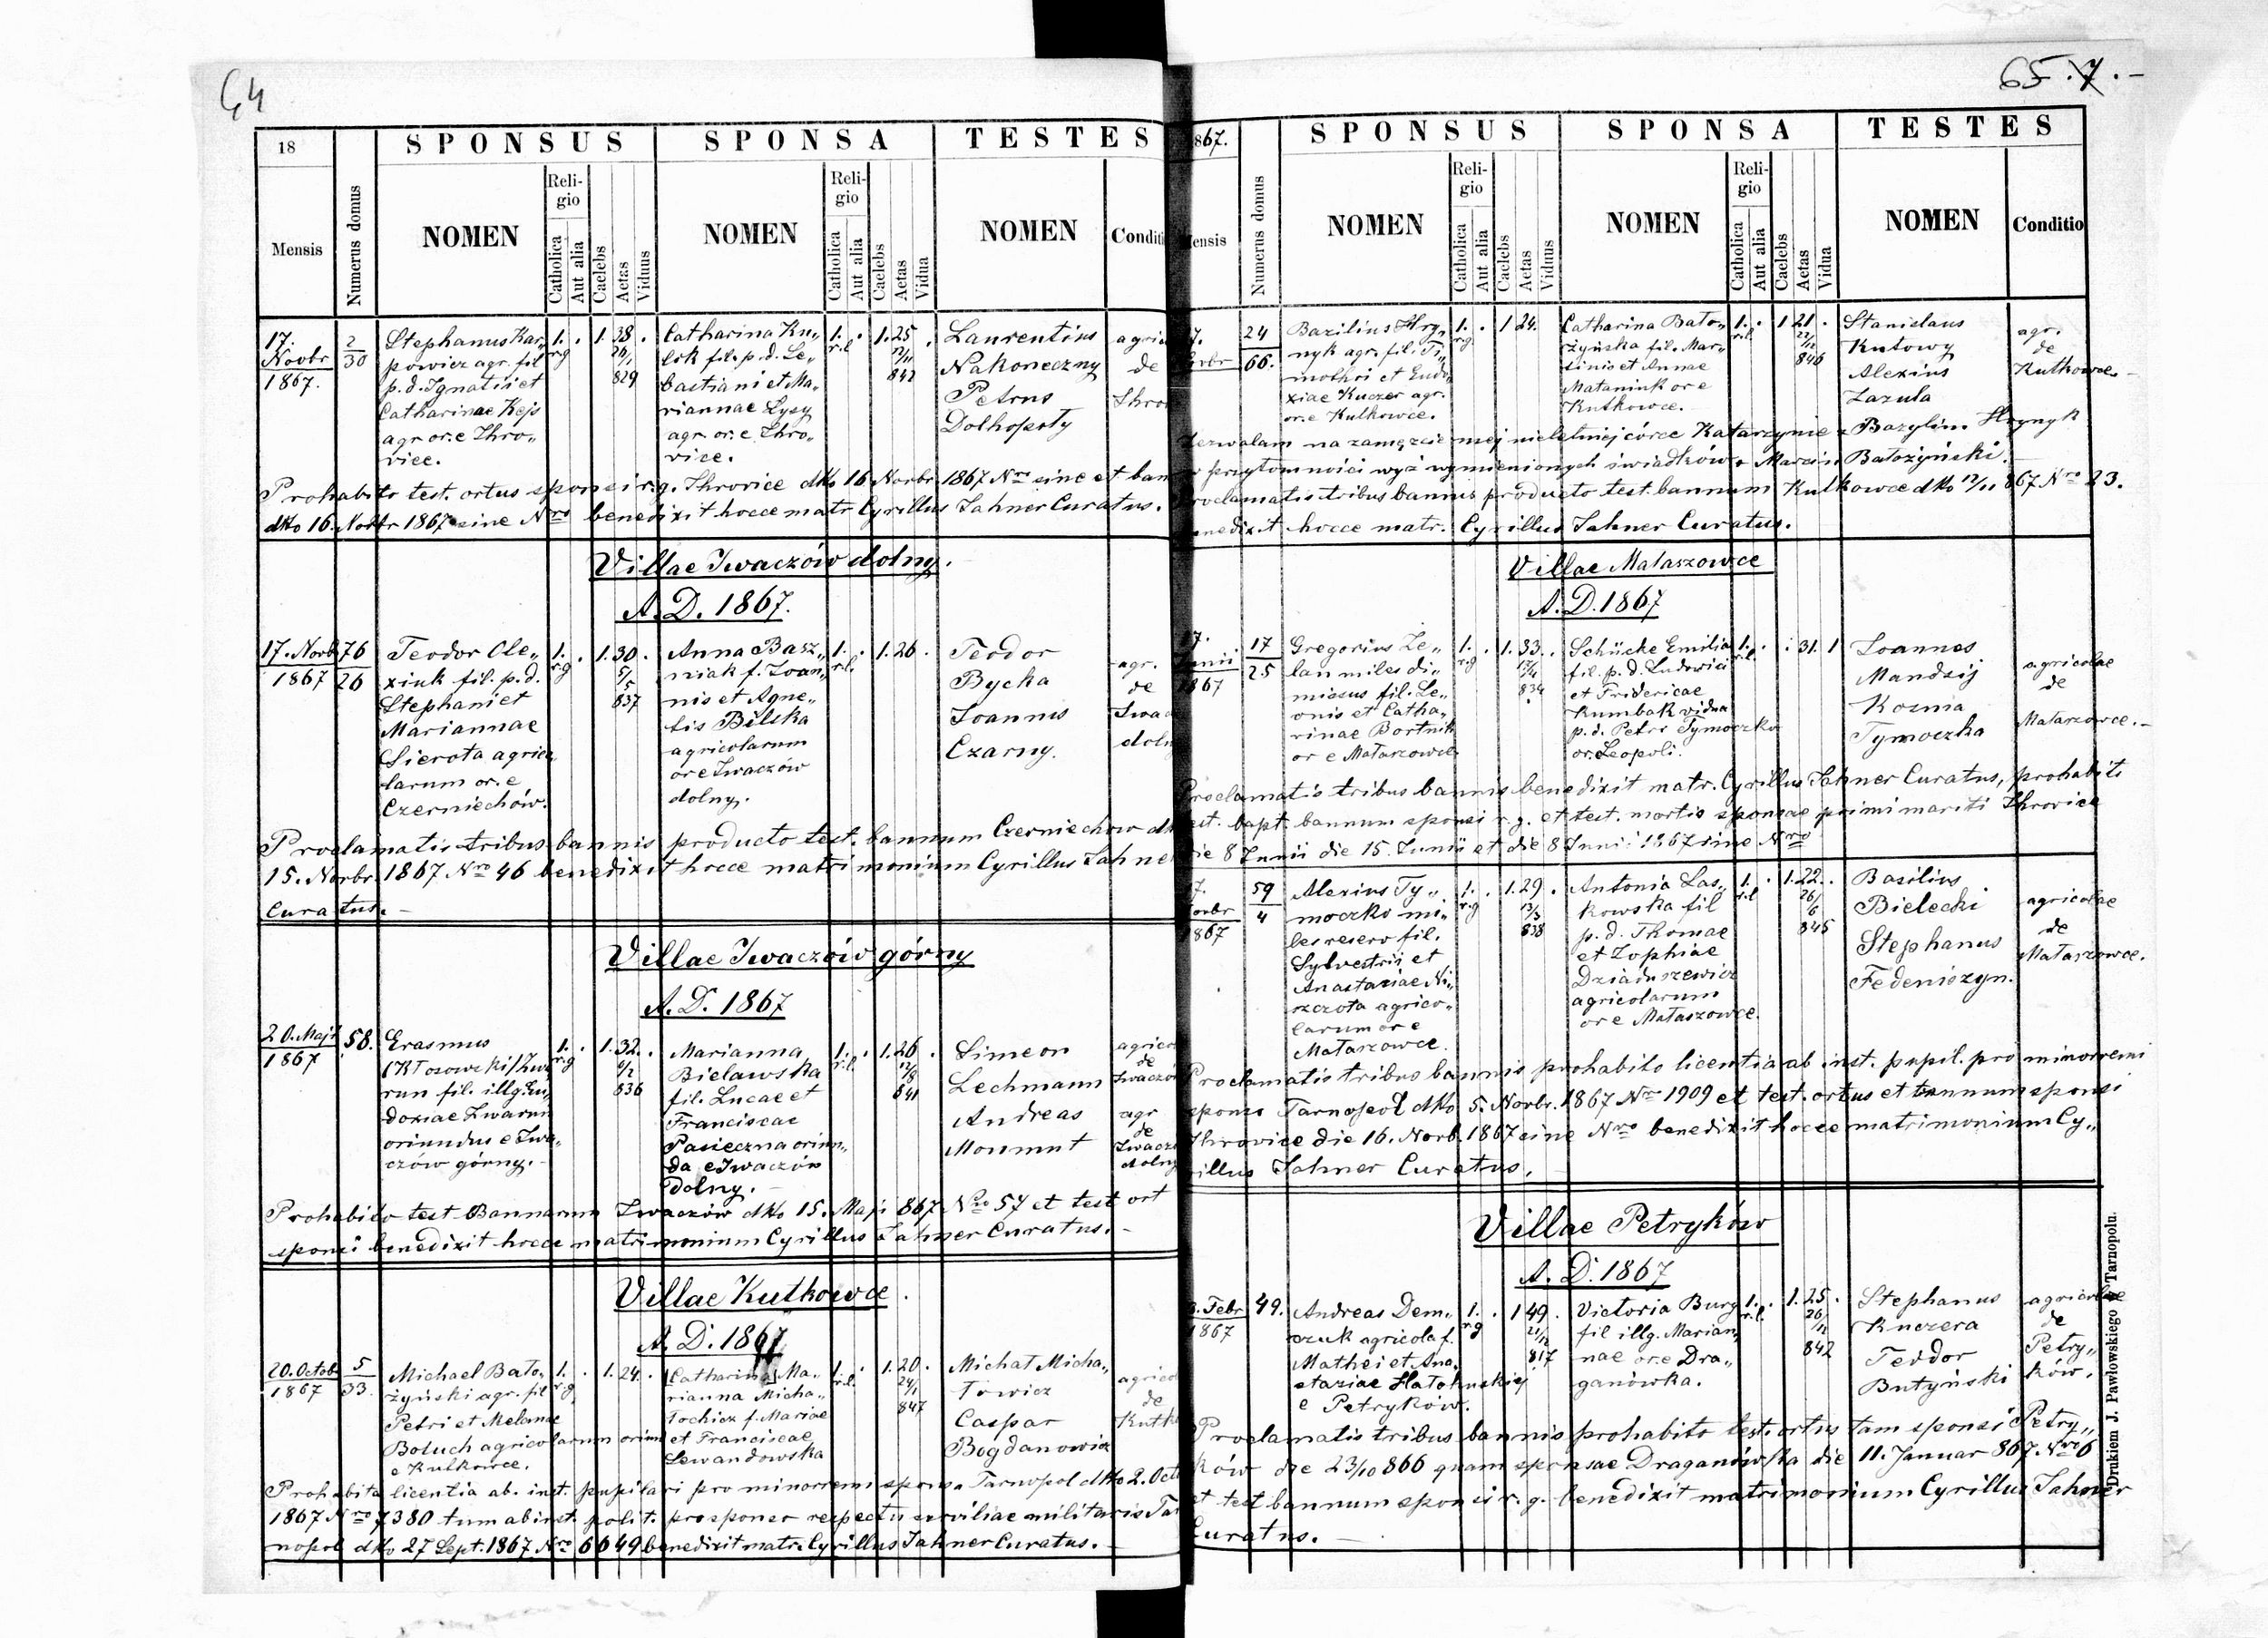 64
18
Mensis
Numerus domus
SPONSUS
NOMEN
Reli-
gio
Catholica
Aut alia
Caelebs
Aetas
Viduus
SPONSA
NOMEN
Reli-
gio
Catholica
Aut alia
Caelebs
Aetas
Vidua
TESTES
NOMEN
Conditi
17.
Novbr
1867.
2
30
Stephanus Kar„
powicz agr. fil
p. d. Ignatii et
Catharinae Kejs
agr or. e Ihro„
vice.
1.
r.g
1. 38 .
26/1
829
Catharina Ku„
lok fil. p. d. Se„
bastiani et Ma„
riannae Lysy
agr. or. e Ihro„
vice.
1. .
r.l
1. 25 .
12/11
842
Laurentius
Nakoneczny
Petrus
Dolhopoły
agric
de
Ihrov
Prohabito test. ortus sponsi r.g. Ihrovice dtto 16 Novbr 1867 Nro sine et ban
dtto 16. Novbr 1867 sine Nro benedixit hocce matr Cyrillus Jahner Curatus.
Villae Iwaczów dolny.
A. D. 1867.
17. Novb
1867
76
26
Teodor Ole„
xiuk fil. p. d.
Stephani et
Mariannae
Sierota agrico
larum or. e
Czerniechów.
1. .
r.g
1. 30 .
5/5
837
Anna Basz„
niak f. Joan„
nis et Agne„
tis Bilska
agricolarum
or e Iwaczów
dolny.
1. .
r.l.
1. 26 .
Teodor
Bycha
Joannis
Czarny.
agr.
de
Iwac
doln
Proclamatis tribus bannis producto test. bannum Czerniechow dt
15. Novbr. 1867 Nro 46 benedixit hocce matrimonium Cyrillus Jahne
Curatus. —
Villae Iwaczów górny
A. D. 1867
20. Maji
1867
58.
Erasmus
/Kłosowski/ Iwa
run fil. illg. Eu„
doxiae Iwarun
oriundus e Iwa„
czów górny. -
1. .
r.g
1. 32. .
2/2
836
Marianna
Bielawska
fil. Lucae et
Franciscae
Pasieczna oriun„
da e Iwaczów
dolny. -
1. .
r.l.
1. 26 .
12/8
841
Simeon
Lechmann
Andreas
Mounmt
agrico
de
Iwaczów
agr
de
Iwacz
dolny
Prohabito test Bannarum Iwaczów dtto 15. Maji 867 Nro 57 et test ort
sponsi benedixit hocce matrimonium Cyrillus Jahner Curatus. -
Villae Kutkowce.
A. D. 1867
20. Octob
1867
5
33.
Michael Bato„
żyński agr. fil
Petri et Melanae
Bołuch agricolarum oriun
e Kutkowce.
1. .
r.g
1. 24. .
[Catharina] Ma„
rianna Micha„
łochicz f. Mariae
et Franciscae
Lewandowska
1. .
r.l.
1. 20 .
24/1
847
Michał Micha„
łowicz
Caspar
Bogdanowicz
agricol
de
Kutk
Prohabita licentia ab. inst. pupilari pro minorreni sponsa Tarnopol dtto 2. Octo
1867 Nro 7380 tum ab inst. polit. pro sponso respectu serviliae militaris Tar
nopol dtto 27 Sept. 1867 Nro 6649 benedixit matr. Cyrillus Jahner Curatus. -
65. 7. -
867.
Mensis
Numerus domus
SPONSUS
NOMEN
Reli-
gio
Catholica
Aut alia
Caelebs
Aetas
Viduus
SPONSA
NOMEN
Reli-
gio
Catholica
Aut alia
Caelebs
Aetas
Vidua
TESTES
NOMEN
Conditio
24
66.
Bazilius Hry„
nyk agr. fil. Ti„
mothei et Eudo„
xiae Kuczer agr.
or. e Kutkowce.
1. .
r.g
1 24.
Catharina Bato„
żyńska fil. Mar„
tinis et Annae
Matanink or e
Kutkowce.
1. .
r.l.
1 21 .
22/12
846
Stanislaus
Kutowy
Alexius
Zazula
agr.
de
Kutkowce. -
Zezwalam na zamęzcie mej nieletniej córce Katarzynie z Bazylim Hrynyk
w przytomności wyż wymienionych świadków. Marcin Batożyński. -
Proclamatis tribus bannis producto test. bannum Kutkowce dtto 17/11 867 Nro 23.
benedixit hocce matr. Cyrillus Jahner Curatus.
Villae Mataszowce
A. D. 1867
17.
Junii
1867
17
25
Gregorius Ze„
lan miles di„
missus fil. Le„
onis et Catha„
rinae Bortnik
or e Mataszowce
1. .
r.g
1. 33. .
834
Schücke Emilia
fil. p. d. Ludovici
et Fridericae
Kumbak vidua
p. d. Petri Tymoczko
or. Leopoli.
1. .
r.l.
. 31. 1
Joannes
Mandzij
Kozma
Tymoczko
agricolae
de
Mataszowce. -
Proclamatis tribus bannis benedixit matr. Cyrillus Jahner Curatus, prohabiti
test. bapt. bannum sponsi r. g. et test. mortis sponsae primi mariti Ihrovice
die 8 Junii die 15. Junii et die 8 Junii 1867 sine Nro
17.
Novbr
1867
59
4
Alexius Ty„
moczko mi„
les reserv fil.
Sylvestrii et
Anastaziae Ni„
szczota agrico„
larum or e
Mataszowce.
1. .
r.g
1. 29. .
13/3
838
Antonia Las„
kowska fil
p. d. Thomae
et Zophiae
Dziaduszewicz
agricolarum
or e Mataszowce.
1. .
r.l
1. 22. .
26/6
845
Basilius
Bielecki
Stephanus
Fedeniszyn.
agricolae
de
Mataszowce.
Proclamatis tribus bannis prohabito licentia ab inst. pupil. pro minorreni
sponso Tarnopol dtto 5. Novbr. 1867 Nro 1909 et test. ortus et bannum sponsi
Ihrovice die 16. Novb. 1867 sine Nro benedixit hocce matrimonium Cy„
rillus Jahner Curatus. -
Villae Petryków
A. D. 1867
3. Febr
1867
49.
Andreas Dem„
czuk agricola f.
Mathei et Ana„
staziae Hatohuskiej
e Petryków.
1. .
r.g
1 49.
21/12
817
Victoria Burg
fil illg. Marian„
nae or. e Dra„
ganówka.
1. .
r.l.
1. 25. .
26/12
842
Stephanus
Kuczera
Teodor
Butyński
agricolae
de
Petry„
ków.
Proclamatis tribus bannis prohabito test. ortus tam sponsi Petry„
ków die 23/10 866 quam sponsae Draganówka die 11. Januar 867. Nro 6
et test bannum sponsi r. g. benedixit matrimonium Cyrillus Jahner
Curatus. -
Drukiem J. Pawłowskiego w Tarnopolu.